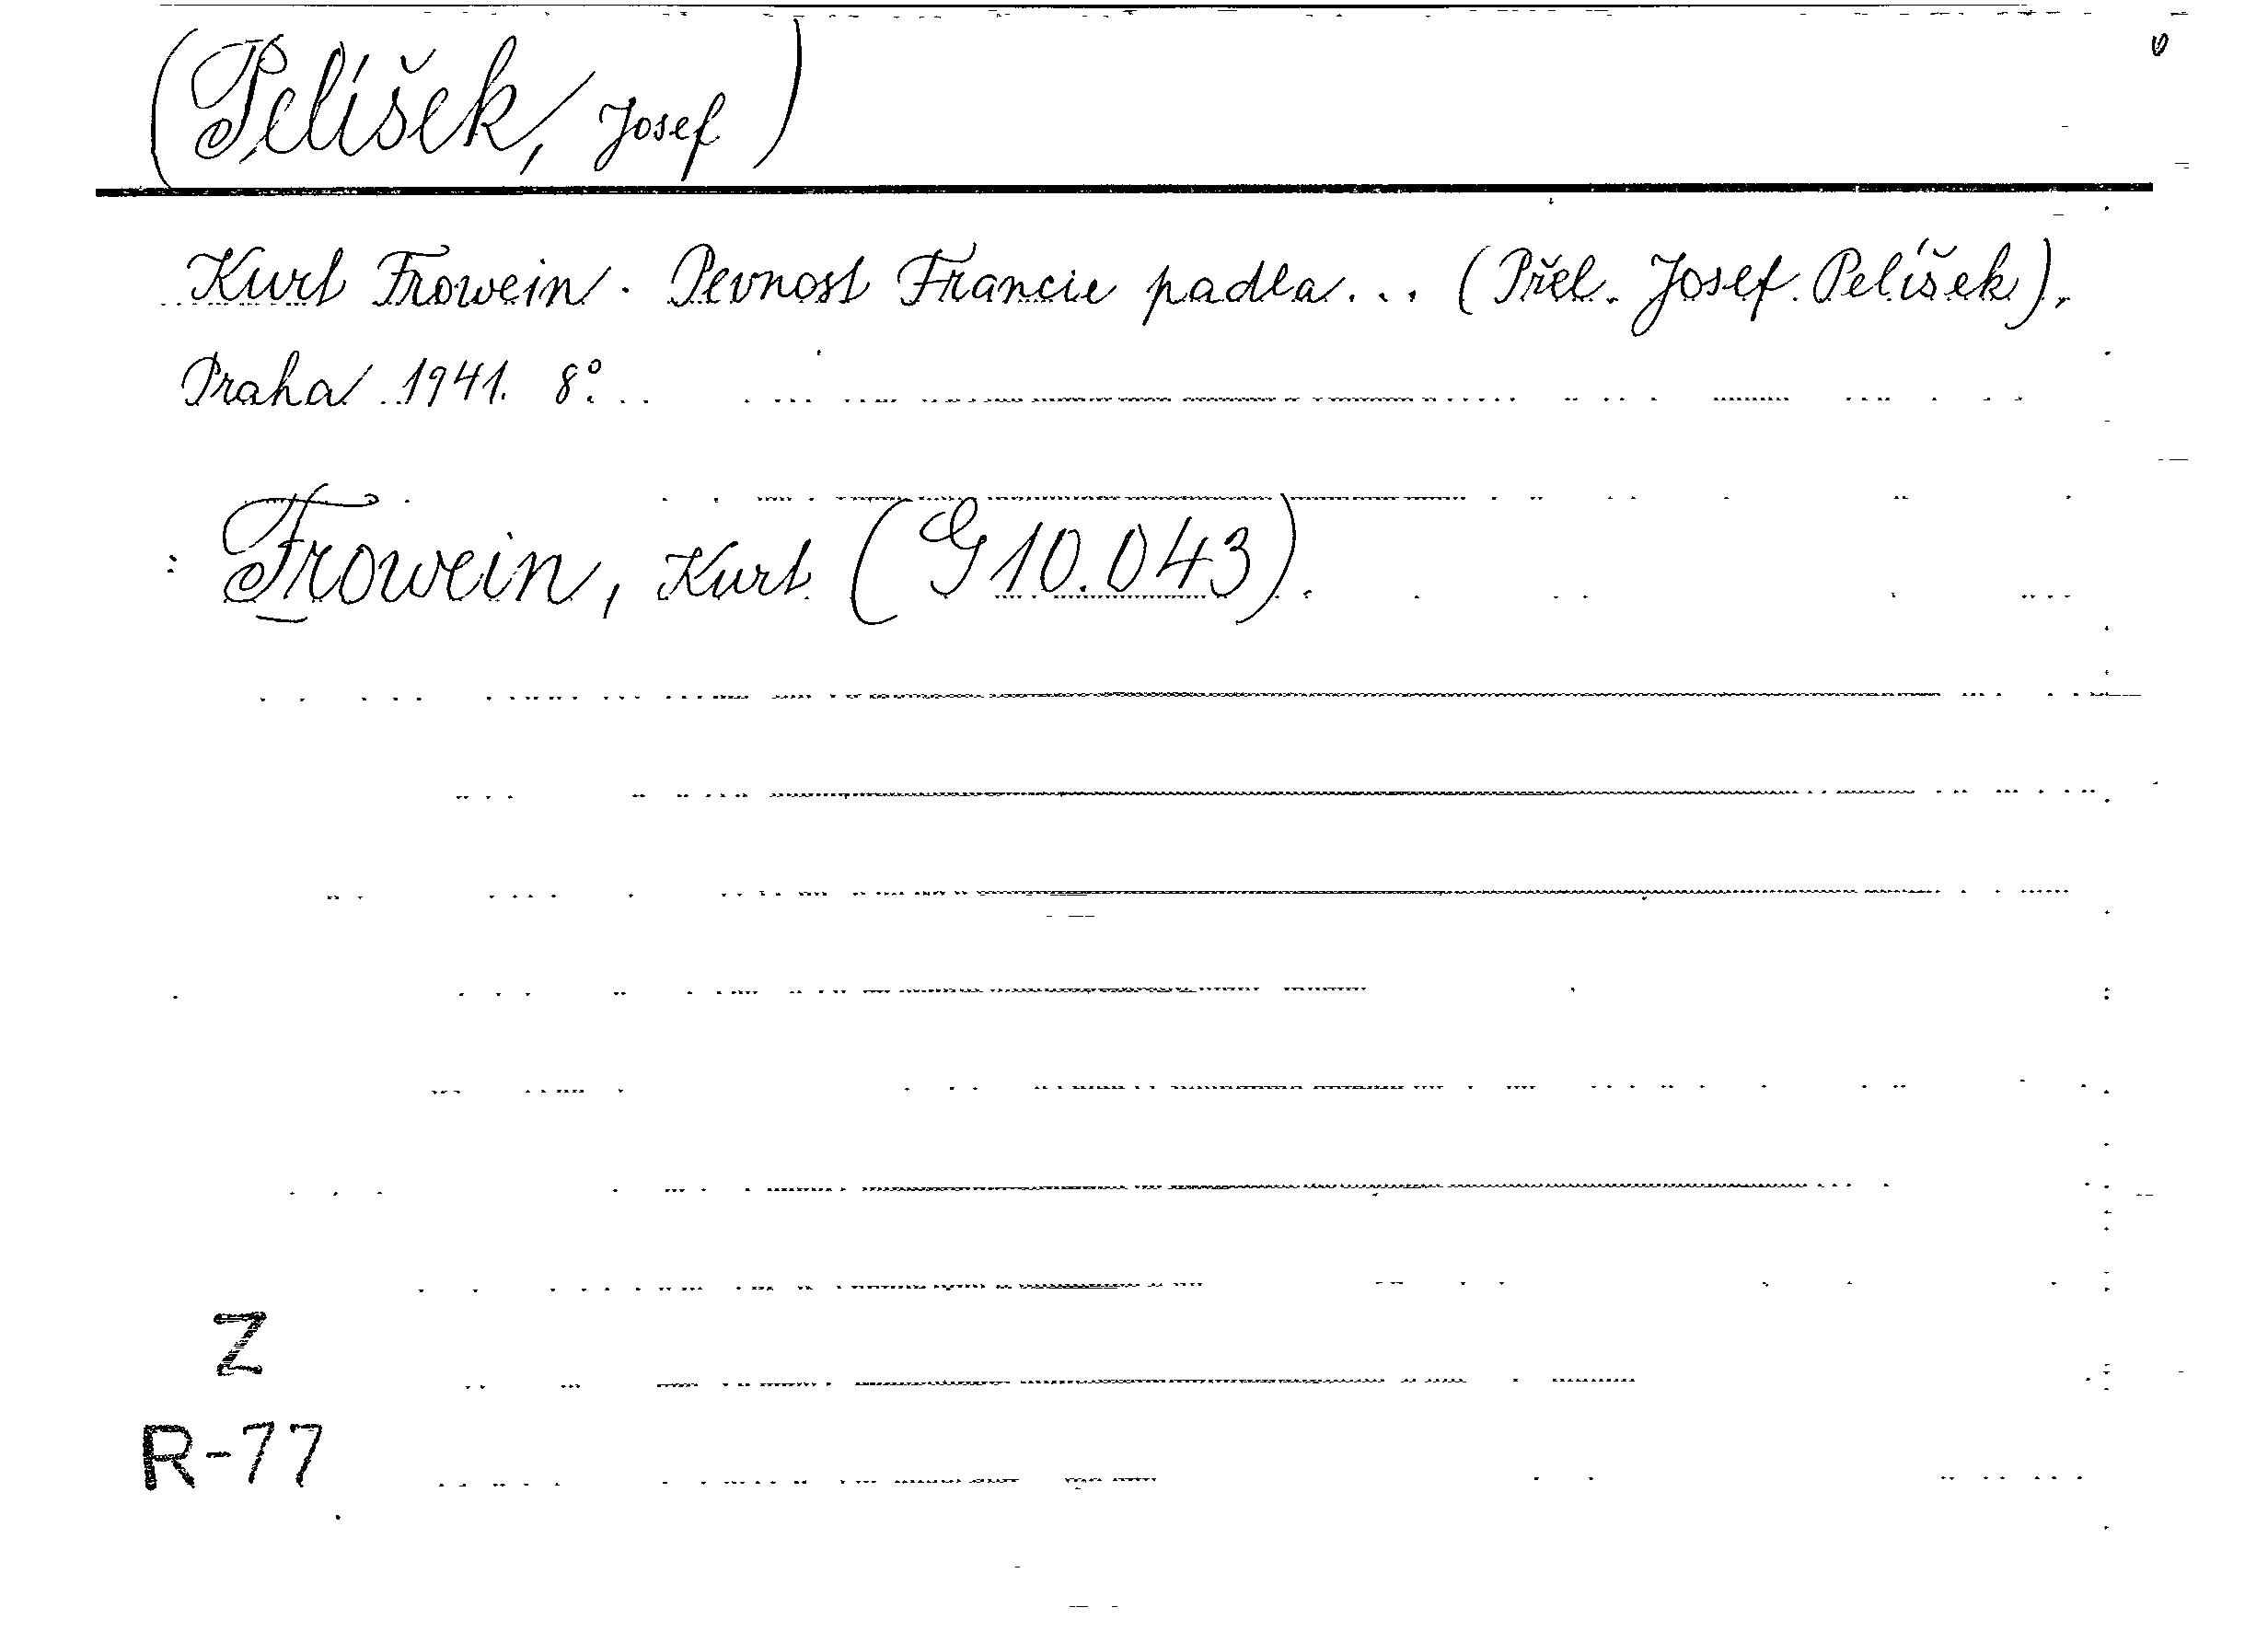 (Pelíšek, Josef)
Kurt Frowein. Pevnost Francie padla... (Přel. Josef Pelíšek).
Praha 1941. 8°.
: Frowein, Kurt (G 10.043).
Z
R-77